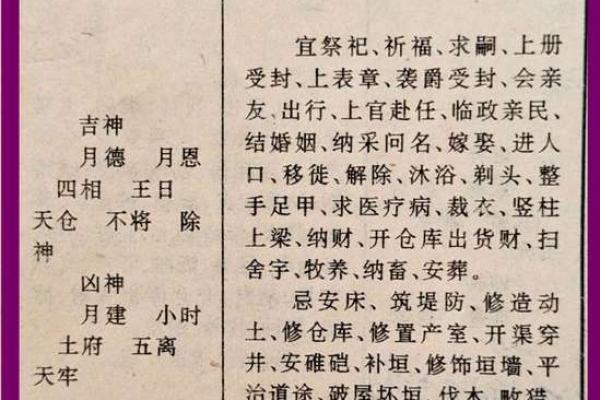 吉神
月德 月恩
四相 王日
天仓 不将 除
神
凶神
月建 小时
土府 五离
天牢
宜祭祀、祈福、求嗣、上册
受封、上表章、袭爵受封、会亲
友、出行、上官赴任、临政亲民、
结婚姻、纳采问名、嫁娶、进人
口、移徙、解除、沐浴、剃头、整
手足甲、求医疗病、裁衣、竖柱
上梁、纳财、开仓库出货财、扫
舍宇、牧养、纳畜、安葬。
忌安床、筑堤防、修造动
土、修仓库、修置产室、开渠穿
井、安碓硙、补垣、修饰垣墙、平
治道途、破屋坏垣、伐木、畋猎、